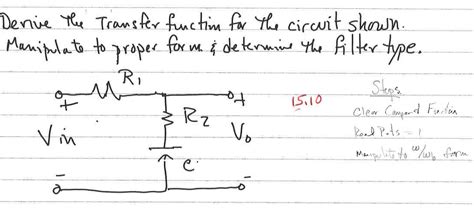 Derive the Transfer function for the circuit shown.
Manipulate to proper form & determine the filter type.
R1
+
+
15.10
R2
Vin
Vo
C
-
-
Steps
Clear Compound Fraction
Real Parts = 1
Manipulate to ω/ωb form